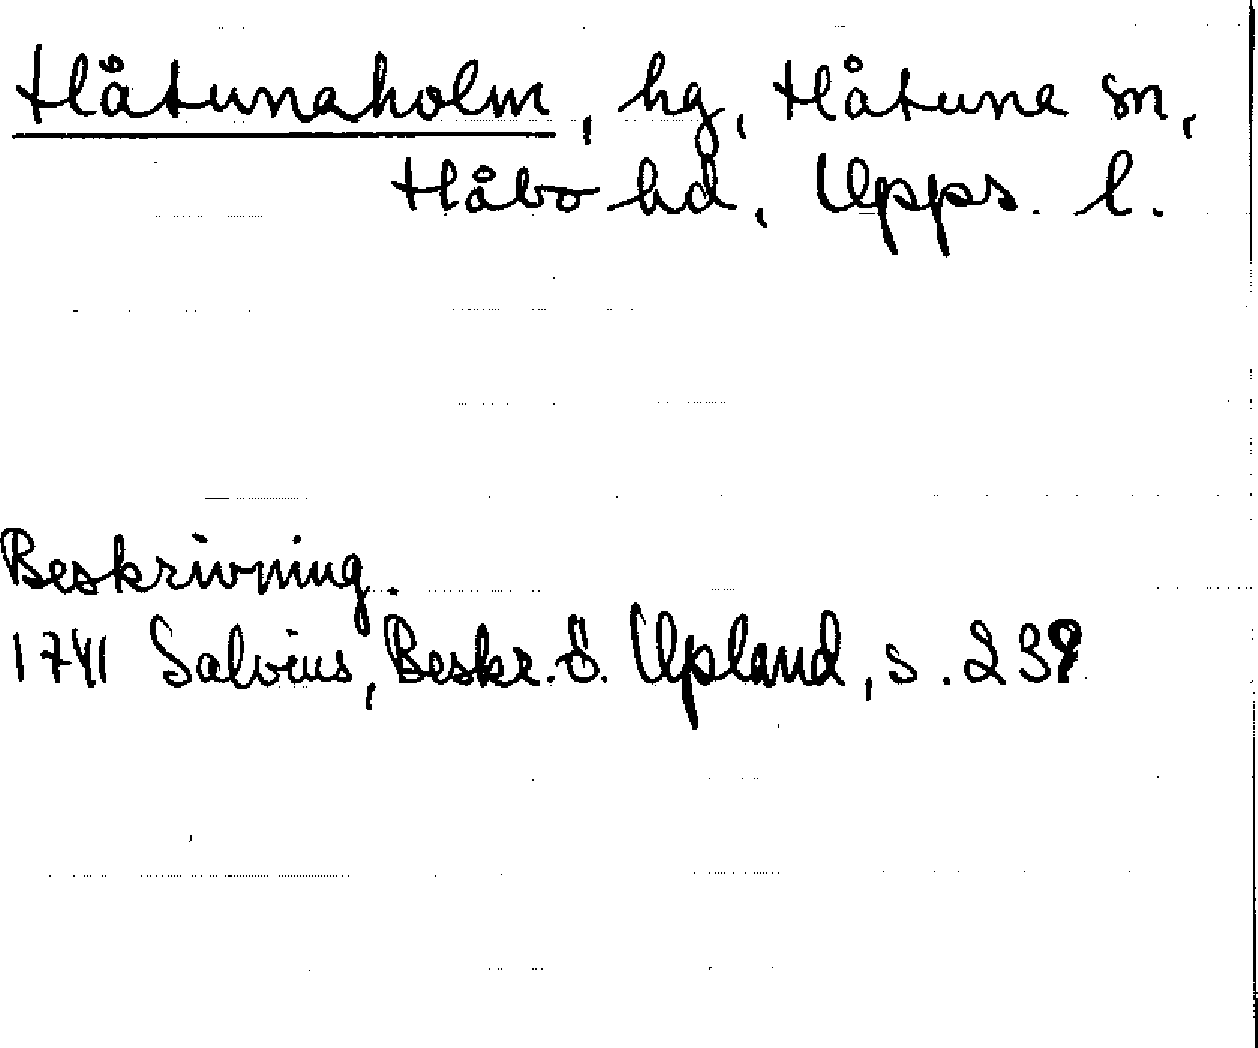 Håtunaholm, hg, Håtuna sn,
Håbo hd, Upps. l.
Beskrivning.
1741 Salvius, Beskr. ö. Upland, s. 239